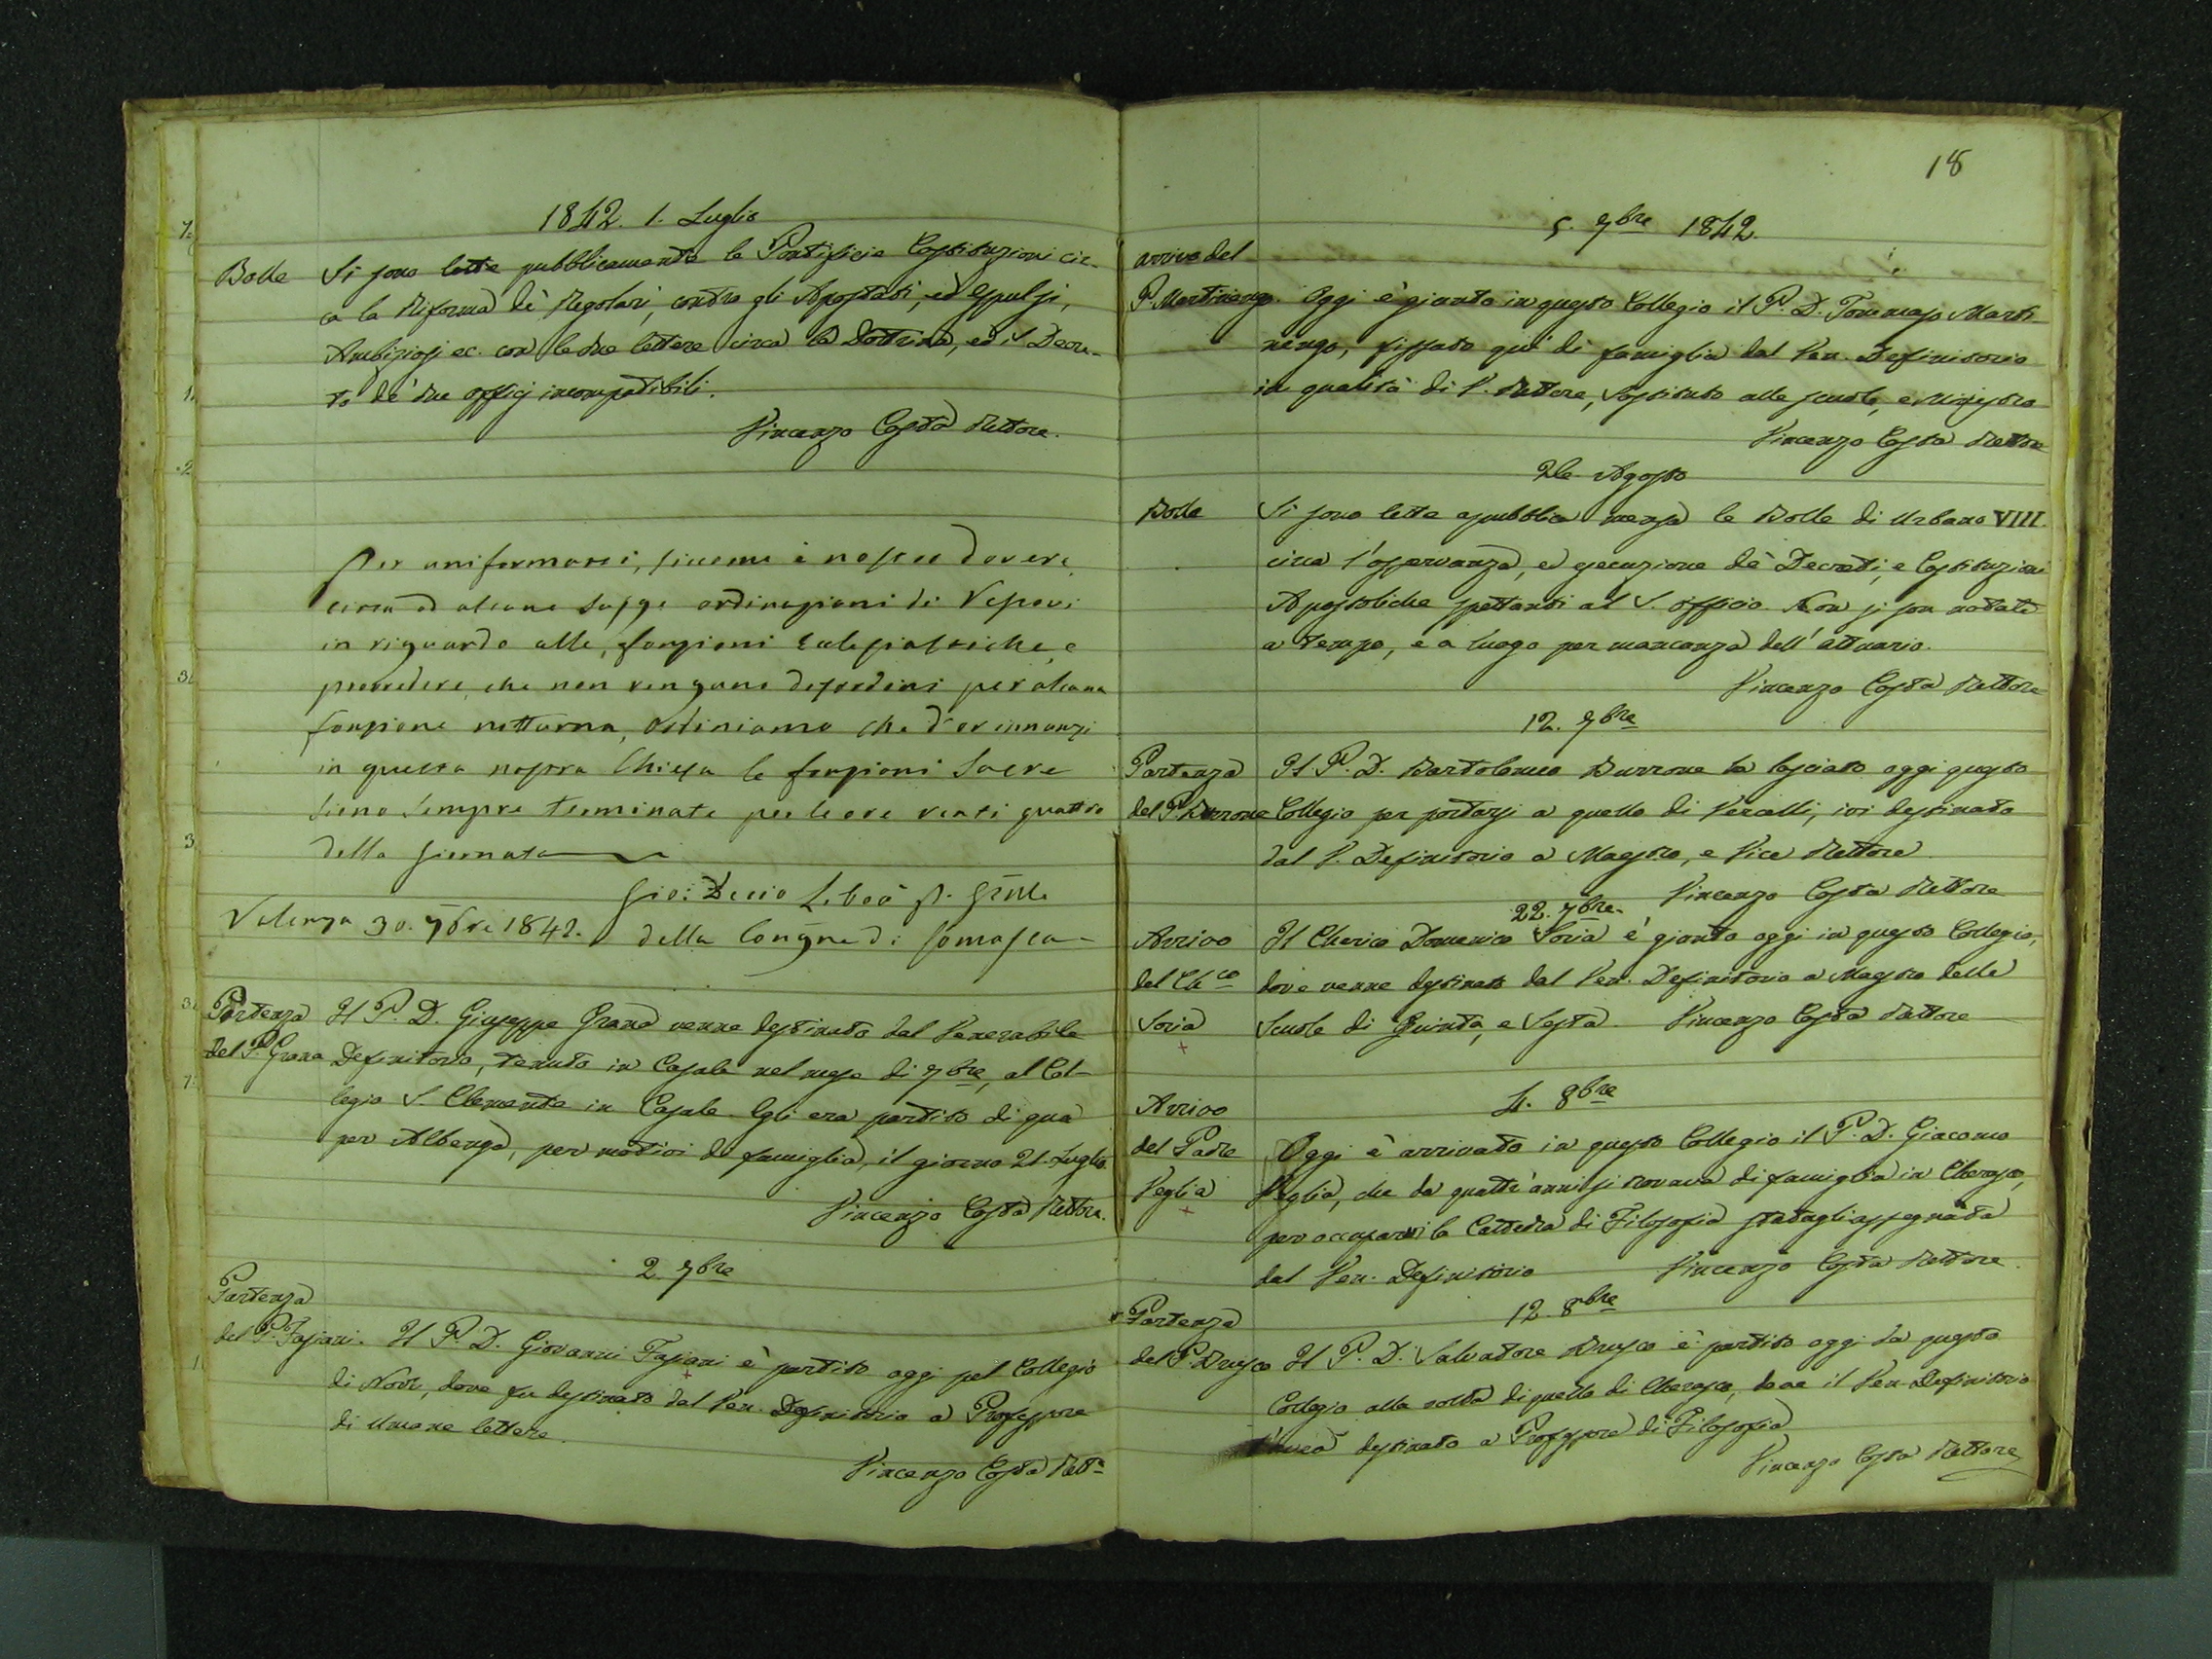 1842. 1. Luglio
Bolle Si sono lette pubblicamente le Pontificie Costituzioni cir-
ca la Riforma de' Regolari, contro gli Apostati, ed Espulsi,
Ambiziosi ec. con le due lettere circa la Dottrina, ed il Decre-
to de' due offizj incompatibili.
Vincenzo Costa Rettore.
Per uniformarci, siccome è nostro dovere
circa ad alcune Sagge ordinazioni di Vescovi
in riguardo alle, fonzioni Eclesiastiche, e
provvedere, che non vengano desordini per alcuna
fonzione notturna, Ordiniamo che d'or innanzi
in questa nostra Chiesa le fonzioni Sacre
Sieno Sempre terminate per le ore venti quattro
della giornata
Gio: Decio Liboà P. Gnle
Valenza 30. 7bre 1842. della Congne di Somasca
Partenza Il P. D. Giuseppe Grana venne destinato dal Venerabile
del P. Grana Definitorio, tenuto in Casale nel mese di 7bre, al Col-
legio S. Clemente in Casale. Egli era partito di qua
per Albenga, per motivi di famiglia, il giorno 21. Luglio.
Vincenzo Costa Rettore.
2. 7bre
Partenza
del P. Fasiani. Il P. D. Giovanni Fasiani è partito oggi pel Collegio
di Novi, dove fu destinato dal Ven. Definitorio a Professore
di Umane lettere.
Vincenzo Costa Rett.e
18
5. 7bre 1842.
arrivo del
P. Martinengo. Oggi è giunto in questo Collegio il P. D. Tommaso Marti-
nengo, fissato qui di famiglia dal Ven. Definitorio
in qualità di V. Rettore, Sostituto alle scuole, e Ministro
Vincenzo Costa Rettore
Agosto
Bolle Si sono lette a pubblica mensa le Bolle di Urbano VIII.
circa l'osservanza, ed esecuzione de' Decreti, e Costituzioni
Apostoliche spettanti al S. officio. Non si son notate
a tempo, e a luogo per mancanza dell' attuario.
Vincenzo Costa Rettore
12. 7bre
Partenza Il P. D. Bartolomeo Burrone ha lasciato oggi questo
del P. Burrone Collegio per portarsi a quello di Vercelli, ivi destinato
dal V. Definitorio a Maestro, e Vice Rettore.
Vincenzo Costa Rettore
22. 7bre.
Arrivo Il Cherico Domenico Soria è giunto oggi in questo Collegio,
del Chco dove venne destinato dal Ven. Definitorio a Maestro delle
Soria Scuole di Quinta, e Sesta. Vincenzo Costa Rettore
4. 8bre
Arrivo
del Padre Oggi è arrivato in questo Collegio il P. D. Giacomo
Veglia Veglia, che da quattr'anni si trovava di famiglia in Cherasco,
per occuparvi la Cattedra di Filosofia statagli assegnata
dal Ven. Definitorio Vincenzo Costa Rettore.
12. 8bre
Partenza
del P. Brusco Il P. D. Salvatore Brusco è partito oggi da questo
Collegio alla volta di quello di Cherasco, dove il Ven. Definitorio
l'avea destinato a Professore di Filosofia
Vincenzo Costa Rettore